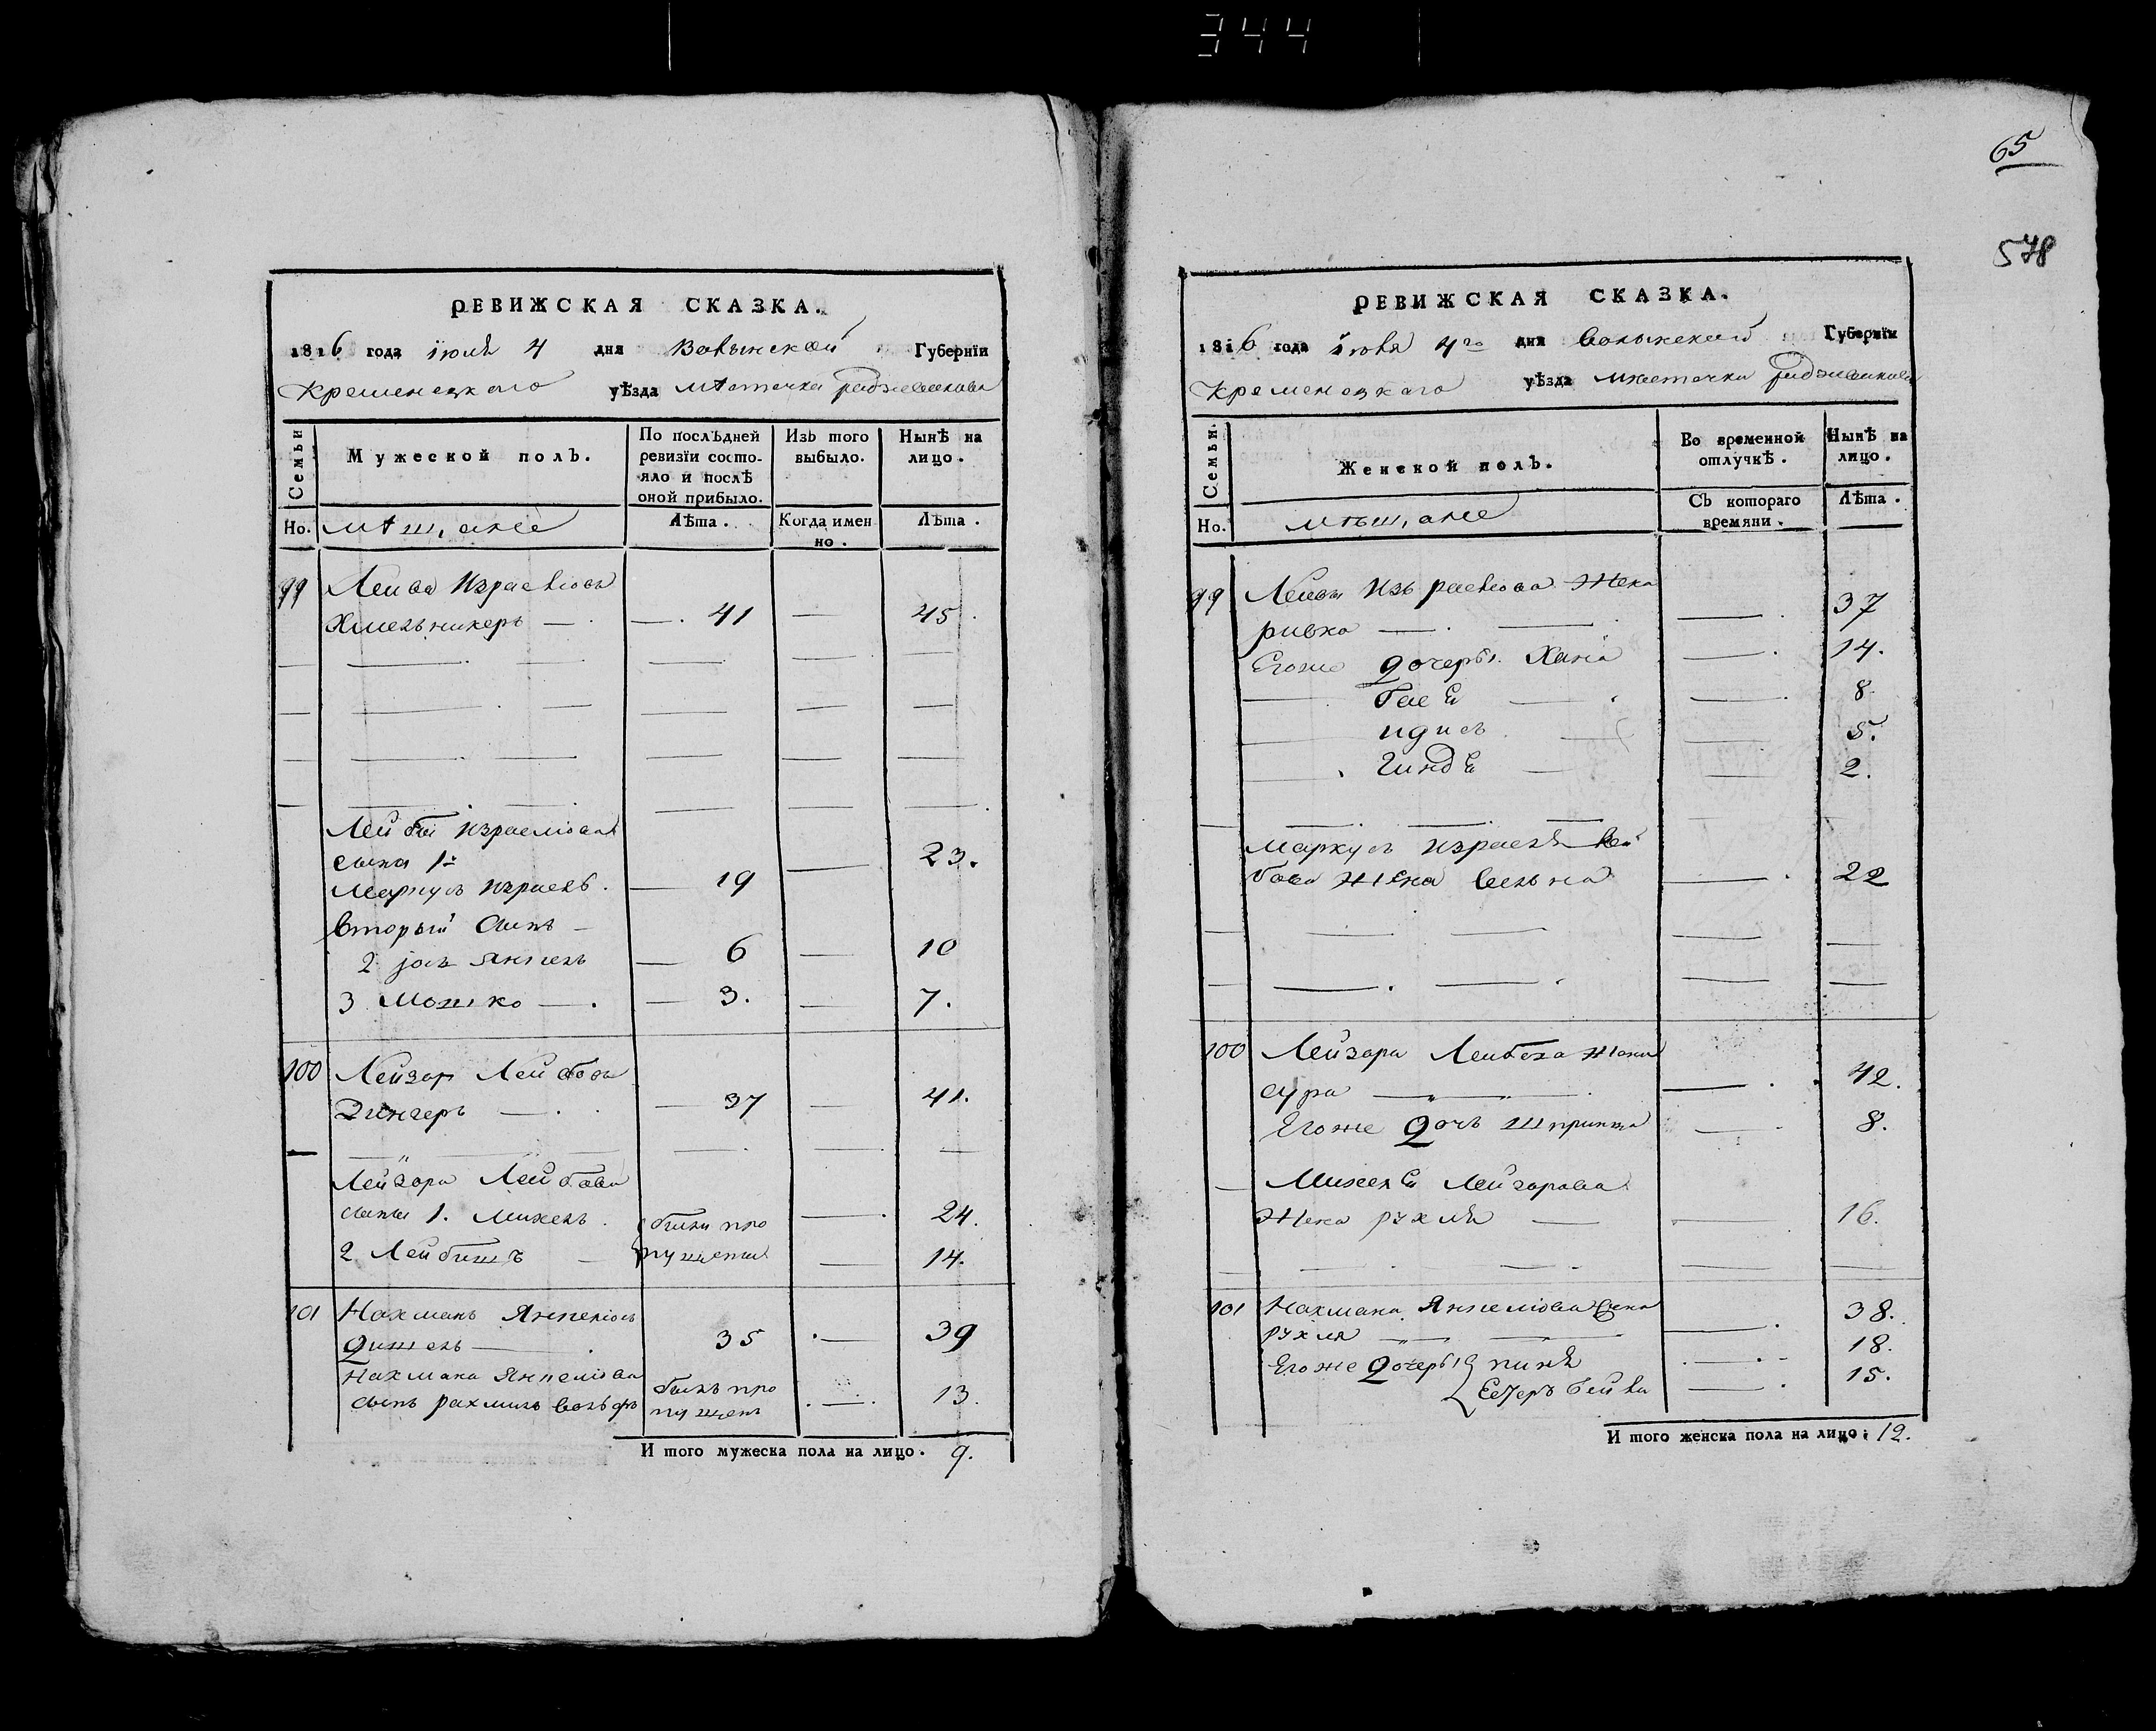 344
РЕВИЖСКАЯ СКАЗКА.
1816 года іюля 4 дня Волынской Губернїи
Кременецкаго уѣзда мѣстечка Радзивилова
Семьи
Мужеской полъ.
По послѣдней ревизїи состо-
яло и послѣ оной прибыло.
Изъ того выбыло.
Нынѣ на лицо.
Но. мѣщане Лѣта. Когда имен но. Лѣта.
99 Лейба Израелювъ
Хмельникеръ — 41 — 45.
Лейбы Израелюва
сына 1й
Маркусъ Израель. 19 — 23.
вторый сынъ
2 Янкель 6 — 10
3 Мошко — 3. — 7.
100 Лейзор Лейбовъ
Зингеръ — 37 — 41.
Лейзора Лейбова
сыны 1. Михель. были про — 24.
2 Лейбишъ пущены — 14.
101 Нахманъ Янкелювъ
Дишель 35 — 39
Нахмана Янкелюва былъ про
сынъ рахмиль вольфъ пущенъ — 13.
И того мужеска пола на лицо. 9.
65
578
РЕВИЖСКАЯ СКАЗКА.
1816 года іюля 4го дня Волынской Губернїи
Кременецкаго уѣзда мѣстечка Радзивилова
Семьи.
Женской полъ.
Во временной отлучкѣ.
Нынѣ на лицо.
Но. мѣщане Съ котораго времяни. Лѣта.
99 Лейбы Израелюва Жена
ривка — 37
Егоже дочеры. Хана — 14.
Бася — 8
идись 5.
Гиндя — 2.
Маркусъ Израеля Лей
бова жена Бельна — 22
100 Лейзора Лейбова жена
сура — 42.
Егоже Дочъ шпринца — 8.
Михеля Лейзорова
Жена рухля — 16.
101 Нахмана Янкелюва жена
рухля — 38.
Егоже Дочеры 18.
Естеръ бейла 15.
И того женска пола на лицо: 12.